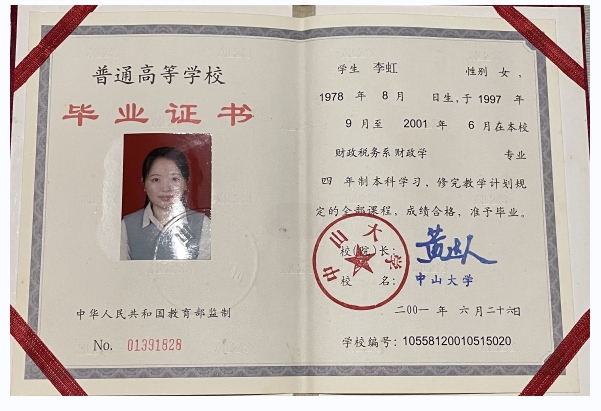 普通高等学校
毕业证书
中华人民共和国教育部监制
No. 01391828
学生 李虹 性别 女，
1978 年 8 月 日生，于 1997 年
9 月至 2001 年 6 月在本校
财政税务系财政学 专业
四 年制本科学习，修完教学计划规
定的全部课程，成绩合格，准予毕业。
校(院)长：
中山大学
校 名： 中山大学
二00一 年 六 月二十六日
学校编号：10558120010515020